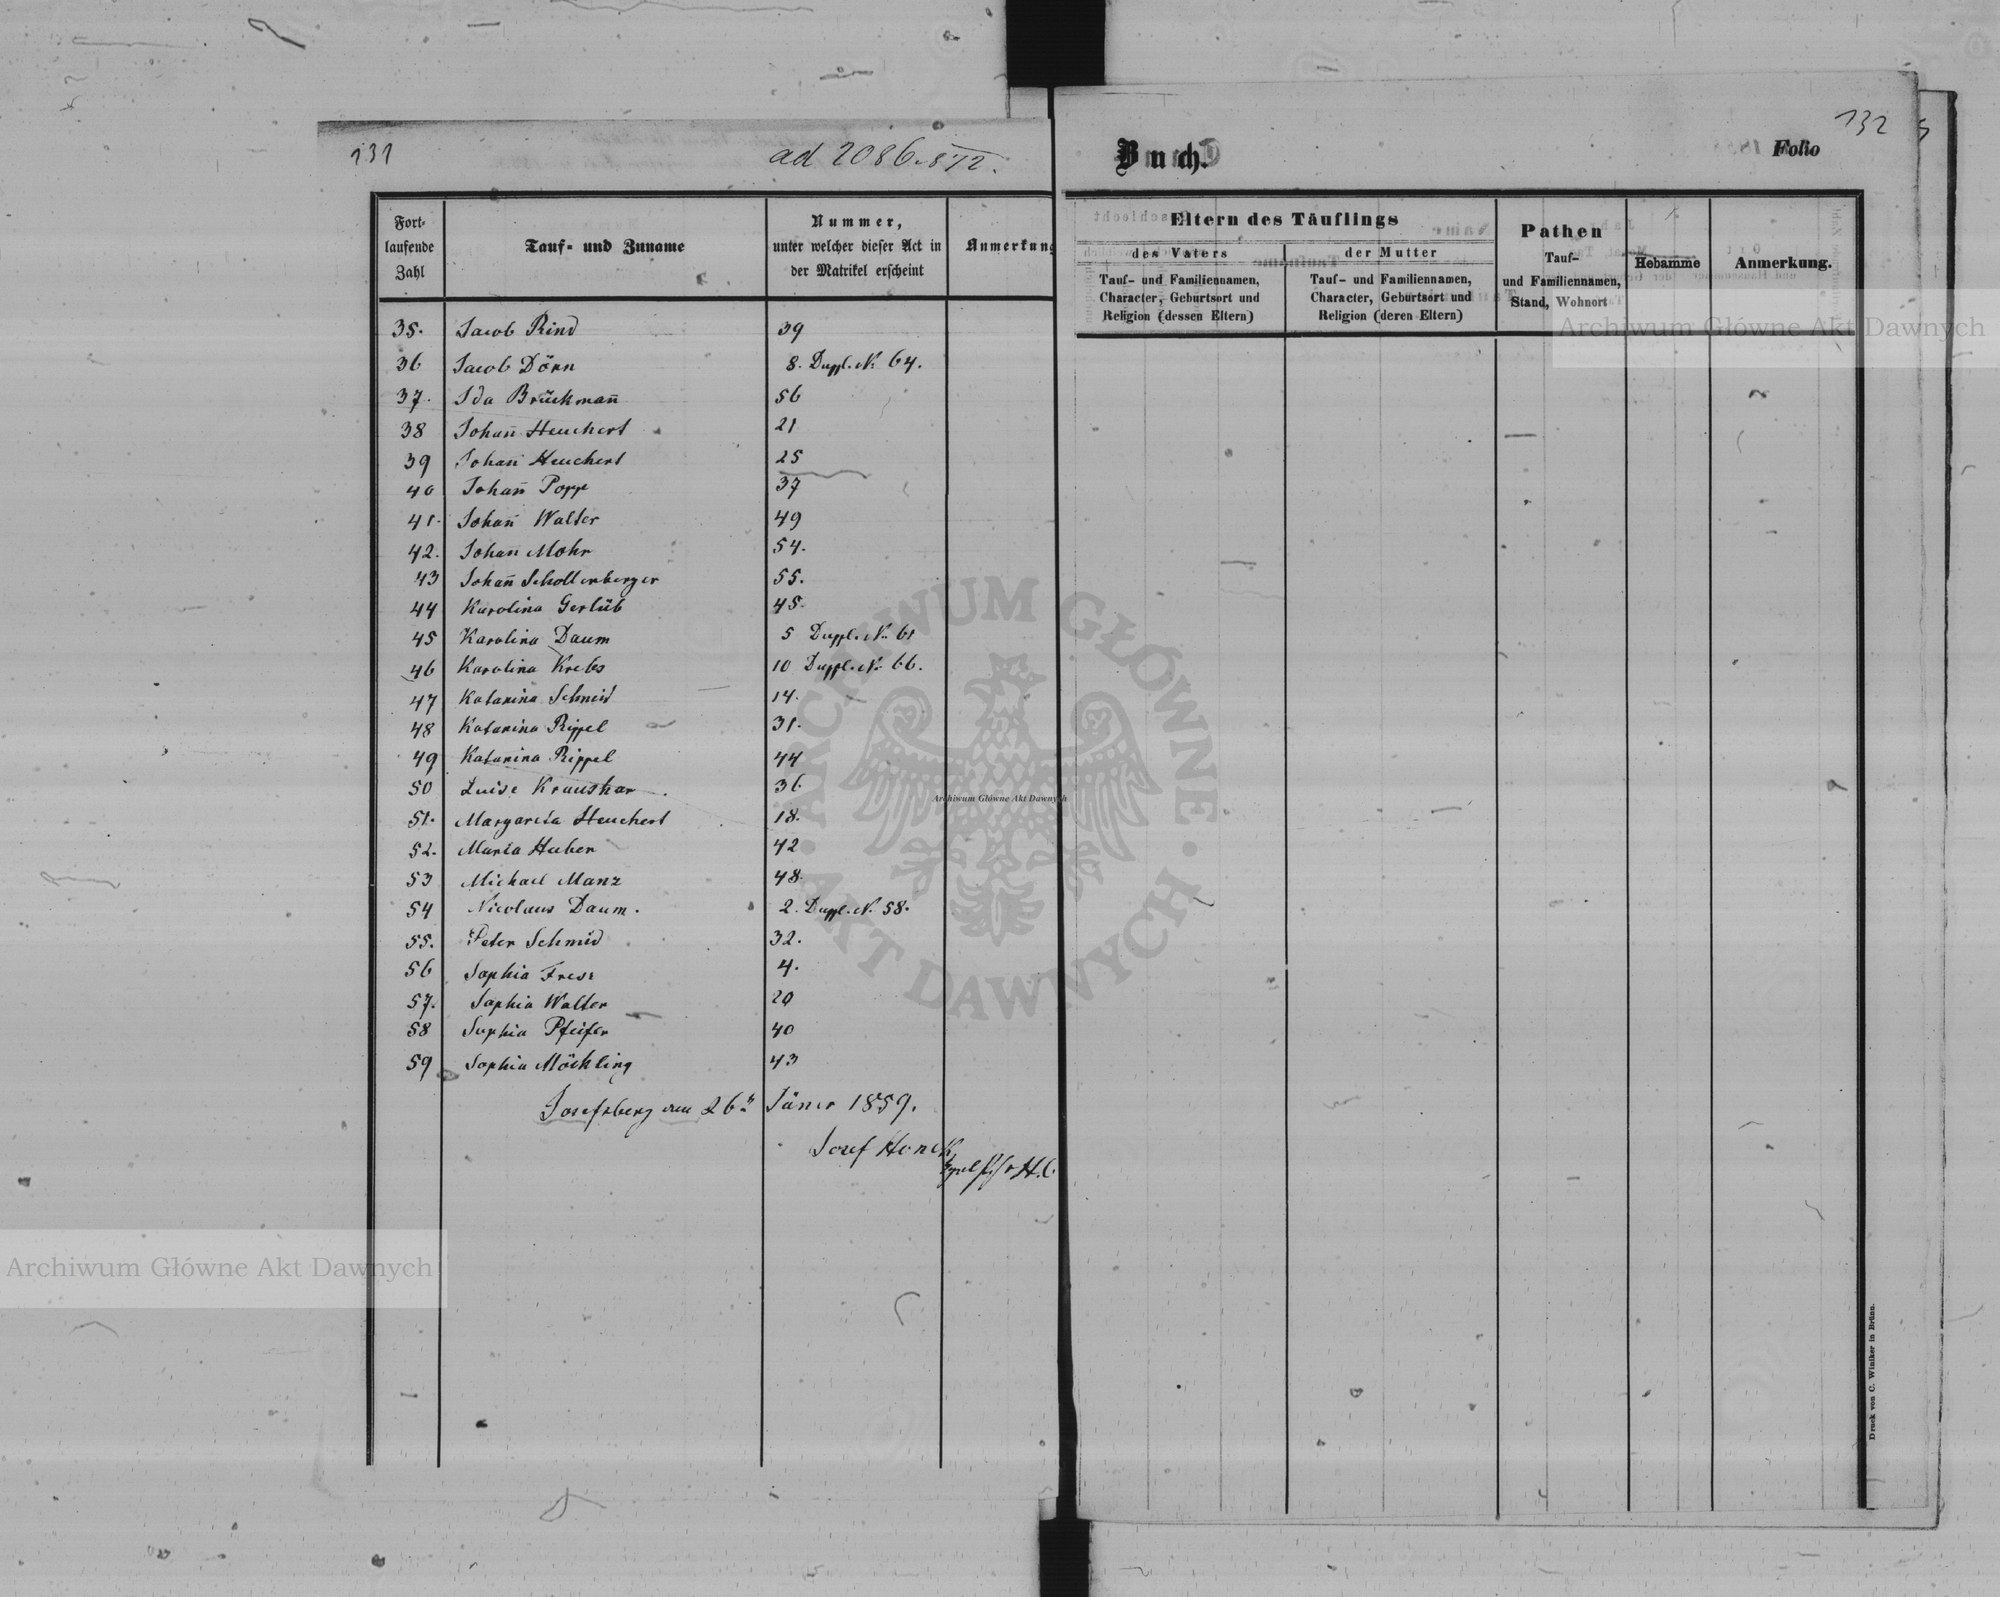 131
ad 2086.872.
Fort-
laufende
Zahl
Tauf- und Zuname
Nummer,
unter welcher dieser Act in
der Matrikel erscheint
Anmerkung
35. Jacob Rind 39
36 Jacob Dörn 8. Duppl. N. 64.
37. Ida Brückmañ 56
38 Johañ Heuchert 21
39 Johañ Heuchert 25
40 Johañ Popp 37
41. Johañ Walter 49
42. Johañ Mohr 54.
43 Johañ Schollenberger 55.
44 Karolina Gerlüb 45.
45 Karolina Daum 5 Duppl. N. 61
46 Karolina Krebs 10 Duppl. N. 66.
47 Katarina Schmid 14.
48 Katarina Rippel 31.
49 Katarina Rippel 44
50 Luise Kraushar 36
51. Margareta Heuchert 18.
52. Maria Huber 42
53 Michael Manz 48.
54 Nicolaus Daum. 2. Duppl. N. 58.
55. Peter Schmid 32.
56 Sophia 4.
57. Sophia Walter 20
58 Sophia Pfeifer 40
59 Sophia Möckling 43
Josefsberg den 26n Jäner 1859.
Josef Honek
132
Buch.
Folio
Eltern des Täuflings
des Vaters
Tauf- und Familiennamen,
Character, Geburtsort und
Religion (dessen Eltern)
der Mutter
Tauf- und Familiennamen,
Character, Geburtsort und
Religion (deren Eltern)
Pathen
Tauf-
und Familiennamen,
Stand, Wohnort
Hebamme
Anmerkung.
Archiwum Główne Akt Dawnych
ARCHIWUM GŁÓWNE
AKT DAWNYCH
Archiwum Główne Akt Dawnych
Archiwum Główne Akt Dawnych
Druck von C. Winiker in Brünn.